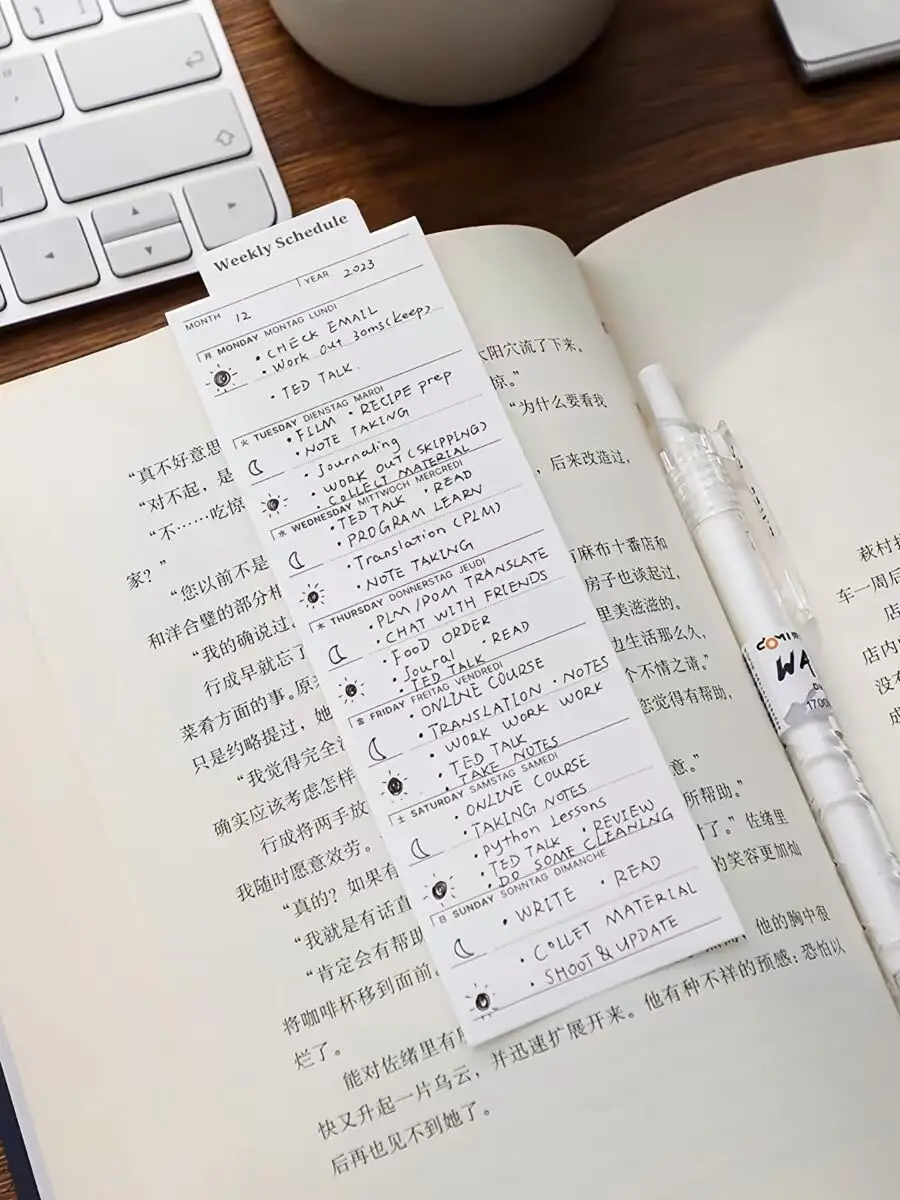 Weekly Schedule
MONTH 12 YEAR 2023
月 MONDAY MONTAG LUNDI
• CHECK EMAIL
• Work out 30ms(keep)
• TED TALK
火 TUESDAY DIENSTAG MARDI
• FILM • RECIPE prep
• NOTE TAKING
• Journaling
• WORK OUT (SKIPPING)
• COLLECT MATERIAL
水 WEDNESDAY MITTWOCH MERCREDI
• TED TALK • READ
• PROGRAM LEARN
• Translation (PLM)
• NOTE TAKING
木 THURSDAY DONNERSTAG JEUDI
• PLM/POM TRANSLATE
• CHAT WITH FRIENDS
• FOOD ORDER
• Joural • READ
• TED TALK
金 FRIDAY FREITAG VENDREDI
• ONLINE COURSE
• TRANSLATION • NOTES
• WORK WORK WORK
• TED TALK
• TAKE NOTES
土 SATURDAY SAMSTAG SAMEDI
• ONLINE COURSE
• TAKING NOTES
• python Lessons
• TED TALK • REVIEW
• DO SOME CLEANING
日 SUNDAY SONNTAG DIMANCHE
• WRITE • READ
• COLLET MATERIAL
• SHOOT & UPDATE
太阳穴流了下来，
惊。”
“真不好意思 “为什么要看我
“对不起，是
“不……吃惊 ，后来改造过，
家？”
“您以前不是 有麻布十番店和
和洋合璧的部分 房子也谈起过，
“我的确说过 里美滋滋的。
行成早就忘了 边生活那么久，
菜肴方面的事。原 个不情之请。”
只是约略提过，她 您觉得有帮助，
“我觉得完全
确实应该考虑怎样 意。”
行成将两手放 所帮助。”
我随时愿意效劳。 了。”佐绪里
“真的？如果有 的笑容更加灿
“我就是有话直
“肯定会有帮助 他的胸中很
将咖啡杯移到面前。 他有种不祥的预感：恐怕以
烂了。
能对佐绪里有 并迅速扩展开来。
快又升起一片乌云，
后再也见不到她了。
萩村
车一周后
店
店内
没有
成
WA
1700